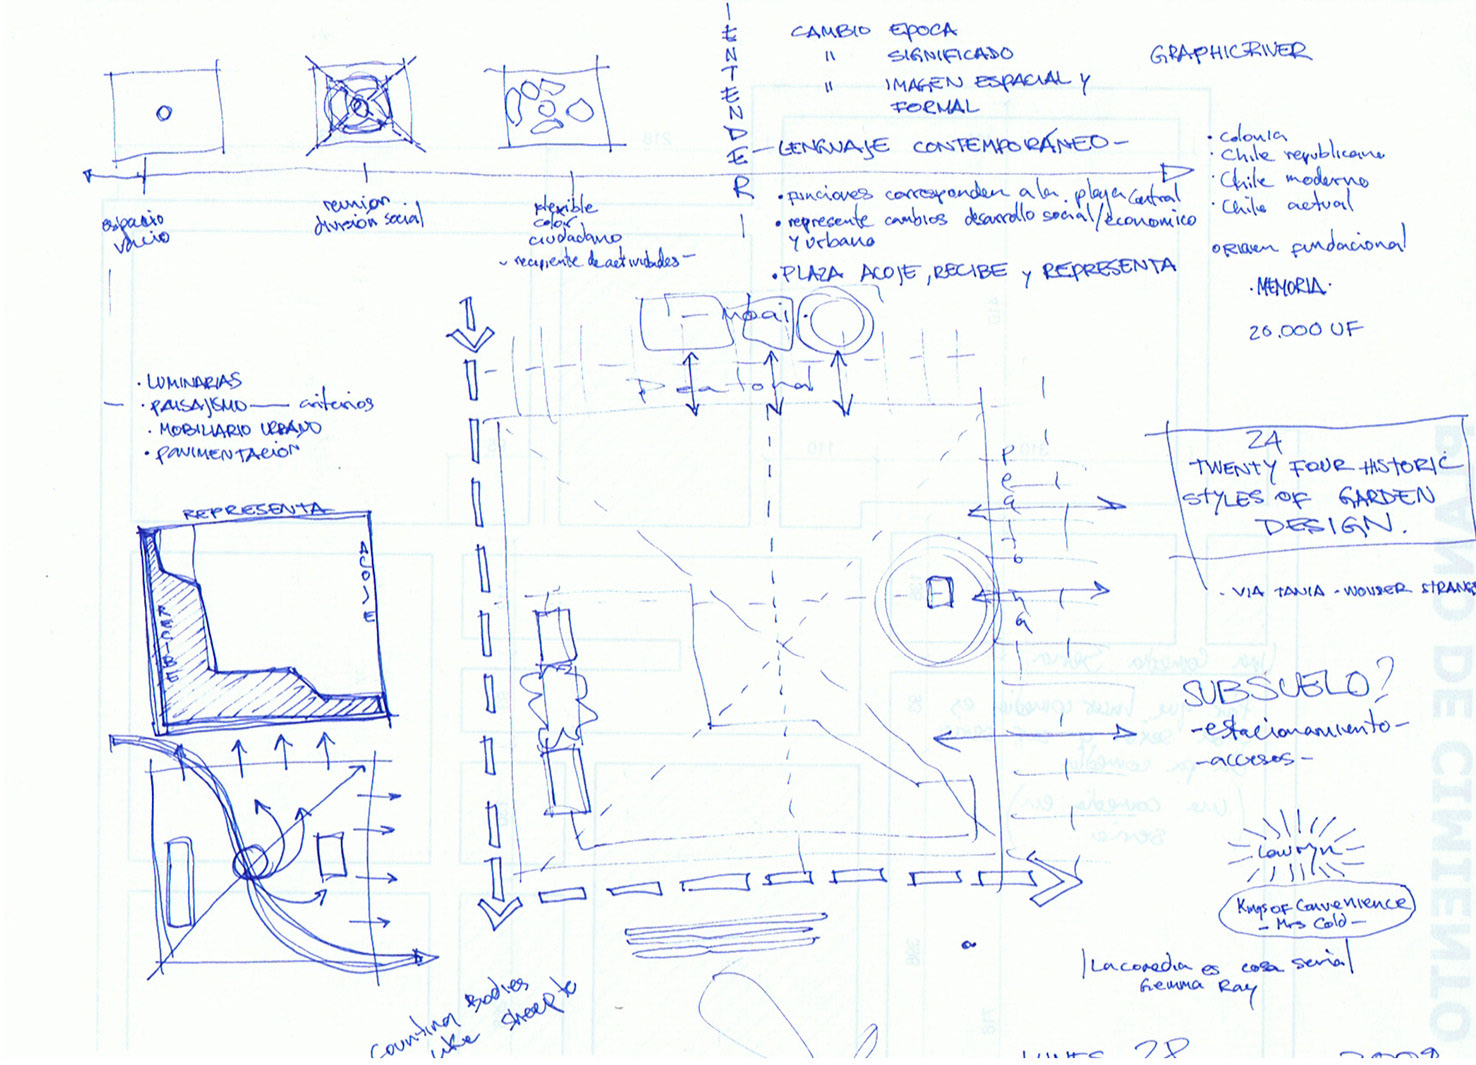 ENTENDER
CAMBIO EPOCA
" SIGNIFICADO
" IMAGEN ESPACIAL Y
FORMAL
- LENGUAJE CONTEMPORÁNEO -
• funciones corresponden a la playa central
• represente cambios desarrollo social/economico
y urbano
• PLAZA ACOJE, RECIBE y REPRESENTA
GRAPHICRIVER
• colonia
• Chile republicano
• Chile moderno
• Chile actual
origen fundacional
• MEMORIA •
20.000 UF
espacio
vacio
reunion
division social
flexible
color
ciudadano
- recipiente de actividades -
• LUMINARIAS
• PAISAJISMO — criterios
• MOBILIARIO URBANO
• PAVIMENTACION
REPRESENTA
ACOJE
RECIBE
Peatonal
24
TWENTY FOUR HISTORIC
STYLES OF GARDEN
DESIGN.
• VIA TANIA - WONDER STRANGE
SUBSUELO?
- estacionamiento -
- accesos -
Kings of Convenience
- Mrs Cold -
La comedia es cosa seria
Gemma Ray
Counting Bodies
Like Sheep to
LUNES 28